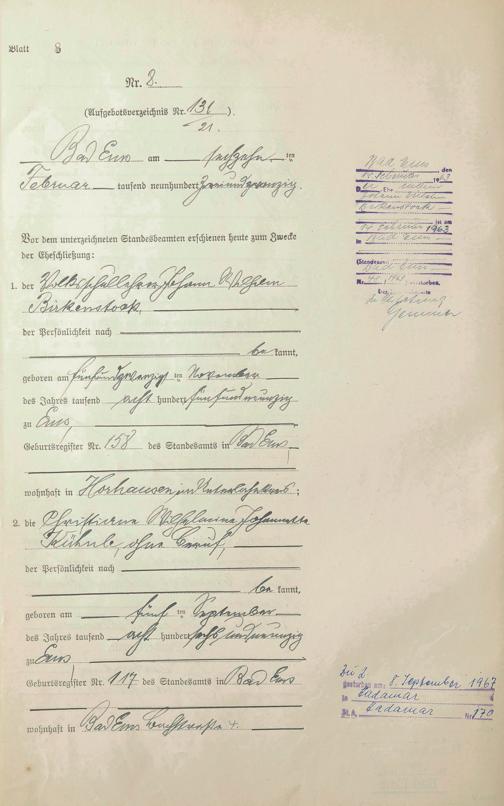 Blatt 8
Nr. 2.
(Aufgebotsverzeichnis Nr. 131/21.)
Bad Ems am sechzehn ten
Februar tausend neunhundert zweiundzwanzig.
Vor dem unterzeichneten Standesbeamten erschienen heute zum Zwecke
der Eheschließung:
1. der Volksschullehrer Johann Wilhelm
Birkenstock,
der Persönlichkeit nach
be kannt,
geboren am fünfundzwanzig ten November
des Jahres tausend acht hundert fünfundneunzig
zu Ems,
Geburtsregister Nr. 158 des Standesamts in Bad Ems,
wohnhaft in Horhausen im Unterlahnkreis;
2. die Christiane Wilhelmine Johannette
Kühnle, ohne Beruf,
der Persönlichkeit nach
be kannt,
geboren am fünf ten September
des Jahres tausend acht hundert sechsundneunzig
zu Ems,
Geburtsregister Nr. 117 des Standesamts in Bad Ems
wohnhaft in Bad Ems Bachstraße 4.
Bad Ems, den
Birkenstock
ist am
14. Februar 1963
in Bad Ems
(Standesamt
Bad Ems
Nr. 1963) verstorben.
Der Standesbeamte
Zu 2
gestorben am: 8. September 1967
in Hadamar
St.A. Hadamar Nr. 170